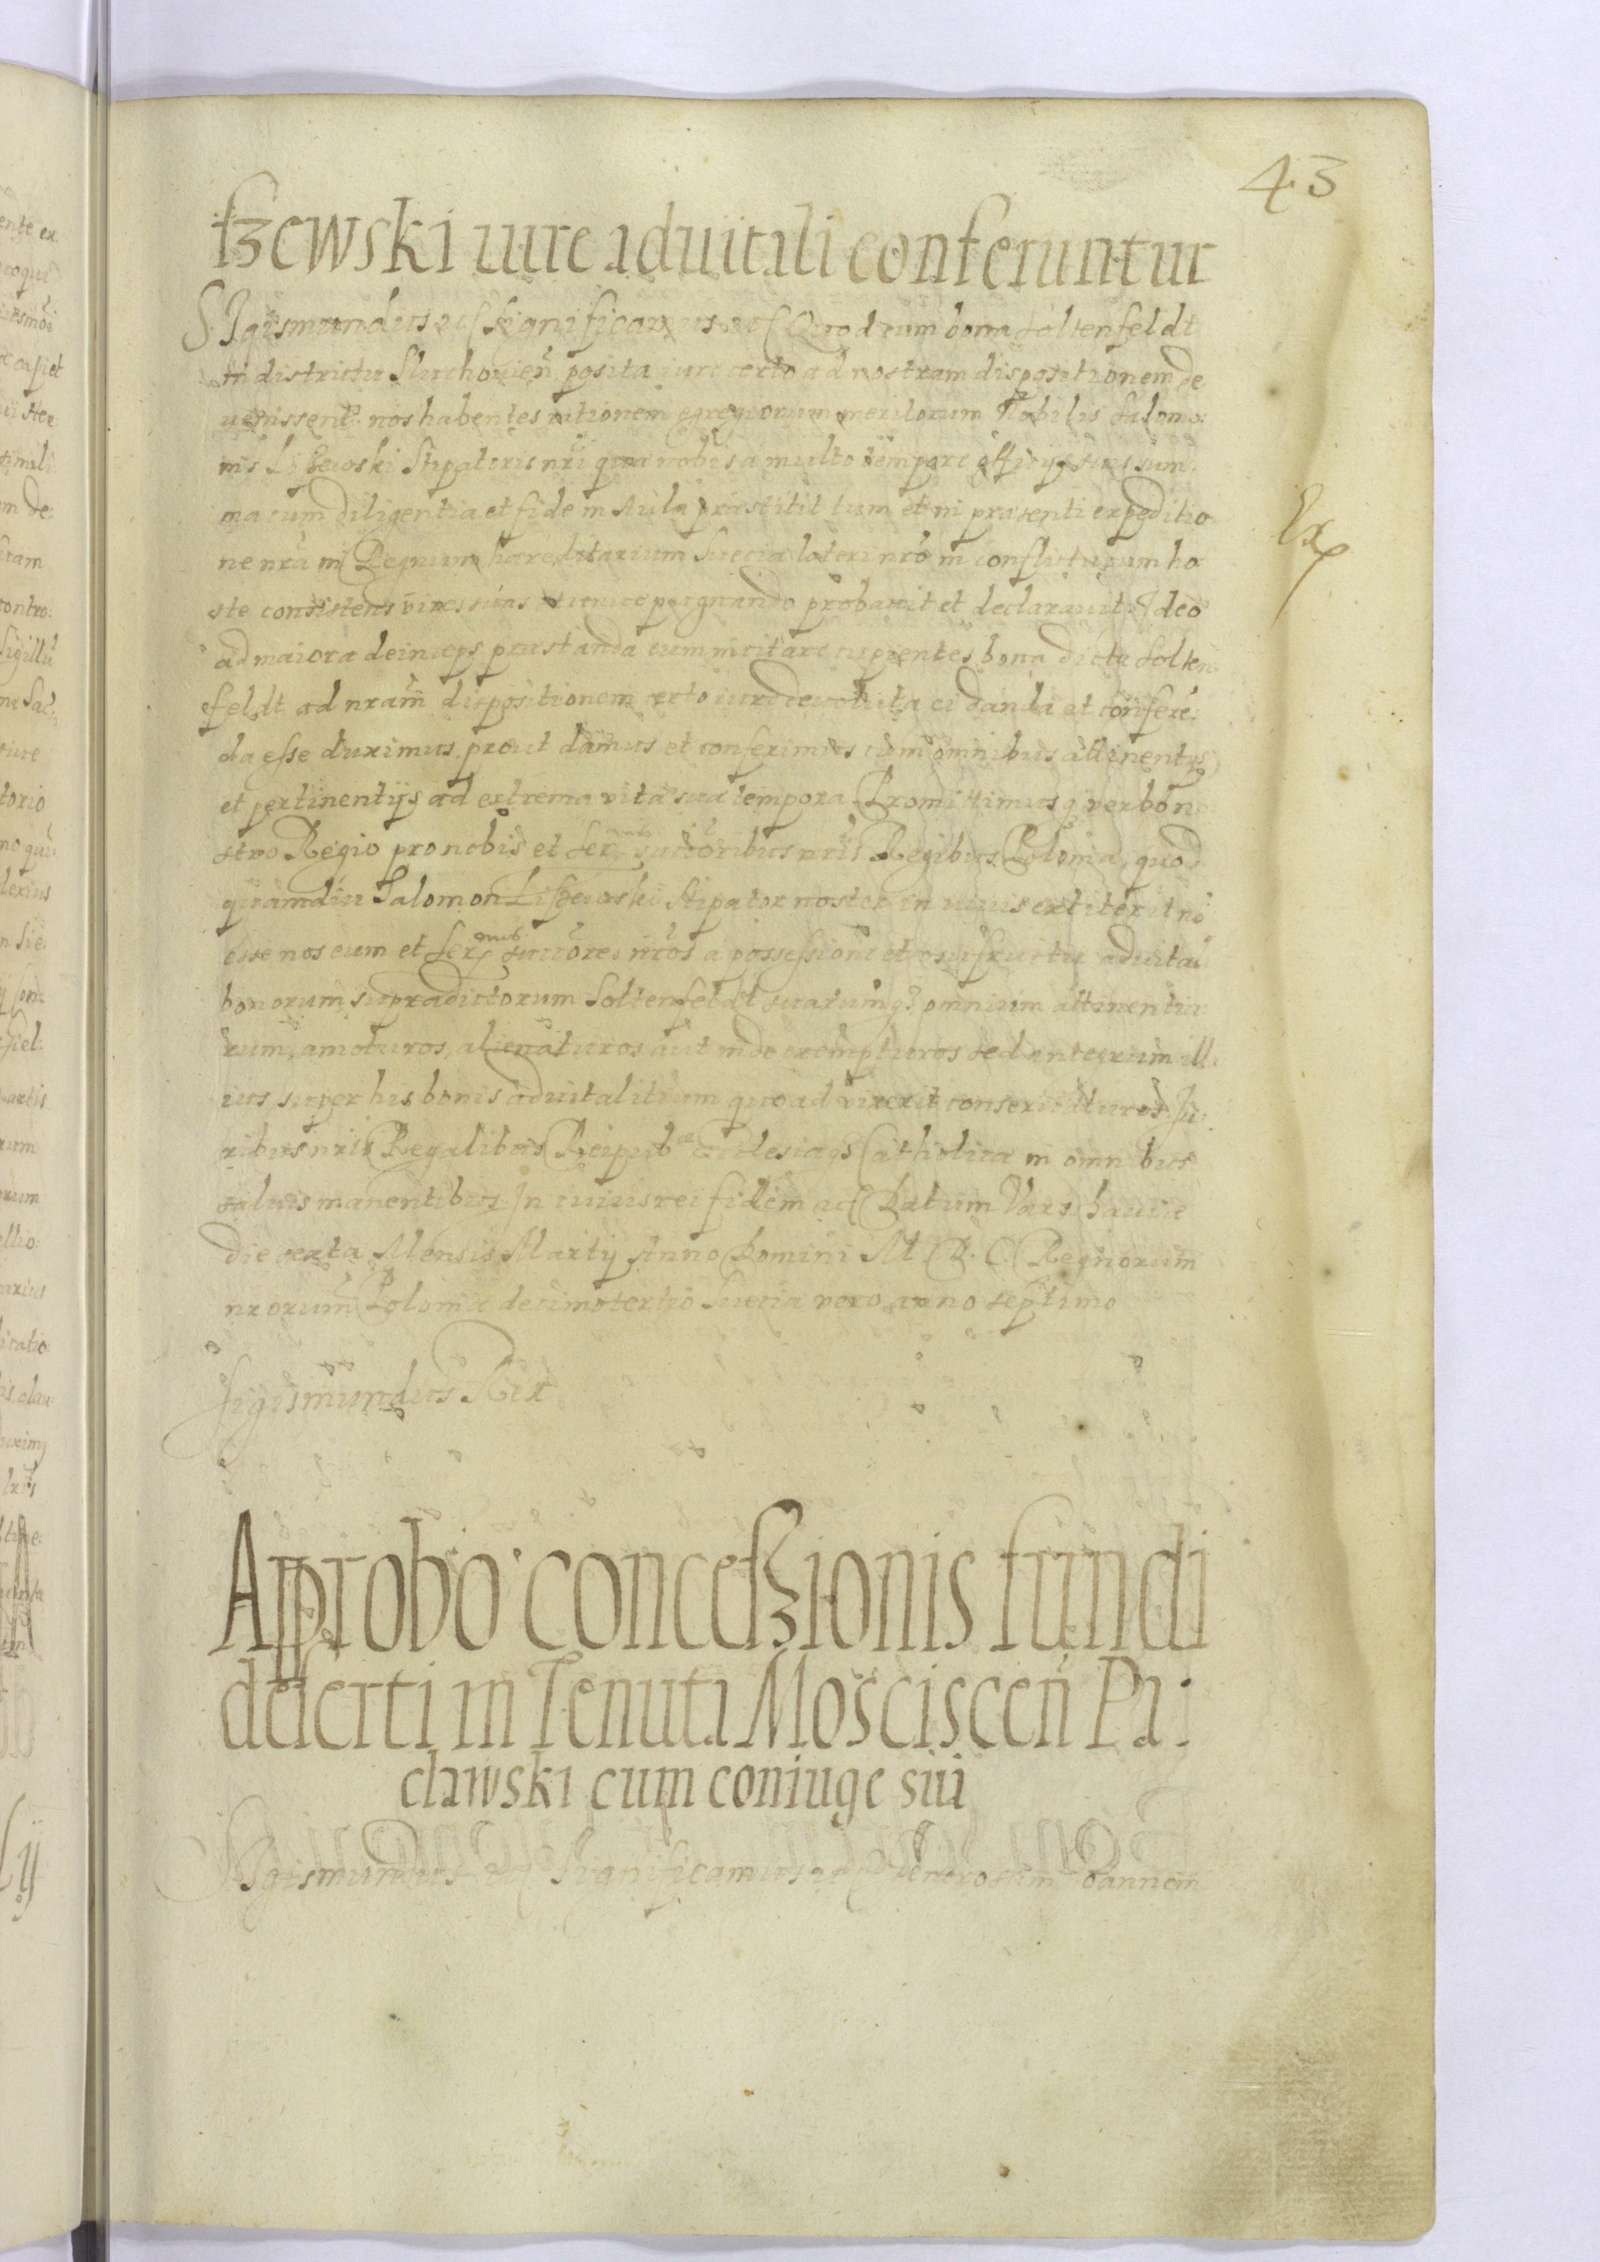 43
ſzewski iure aduitali conferuntur
Sigismundus etc Significamus etc Quod cum bona Soltenfeldt
in districtu Sluchouień posita iure certo ad nostram dispositionem de
uenissent nos habentes rationem egregiorum meritorum Nobilis Salomo
nis Liszewski Stipatoris nri qui nobis a multo tempore officijs suis sum
ma cum diligentia et fide in Aula præstitit tum et in præsenti expeditio
ne nrã in Regnum hæreditarium Sueciæ lateri nrõ in conflictu cum ho
ste consistens vires suas strenue pugnando probauit et declarauit Ideo
ad maiora deinceps præstanda eum incitare cupientes bona dicta Solten
feldt ad nram dispositionem certo iure deuoluta ei danda et confere
da esse duximus prout damus et conferimus cum omnibus attinentijs
et pertinentijs ad extrema vitæ suæ tempora Promittimus q̃ verbo n
stro Regio pro nobis et Ser succoribus nris Regibus Poloniæ quod
quamdiu Salomon Liszewski Stipator noster in uiuis extiterit nõ
esse nos eum et Ser succores nros a possessione et usufructu aduitali
bonorum supradictorum Soltenfeldt suarumq̃ omnium attinentia
rum, amoturos, alienaturos aut inde exempturos sed integrum ill
ius super his bonis aduitalitium quoad vixerit conseruaturos Ju
ribus nris Regalibus Reipub Ecclesiæq̃ Catholicæ in omnibus
saluis manentibus In cuius rei fidem etc Datum Varschauiæ
die sexta Mensis Martij Anno Domini M D C Regnorum
nrorum Poloniæ decimotertio Sueciæ vero anno septimo
Sigismundus Rex
Ex
Approbõ conceſzionis fundi
deserti in Tenuta Mościsceń Pa:
clawski cum coniuge sua
Sigismundus etc Significamus etc Generosum Joannem